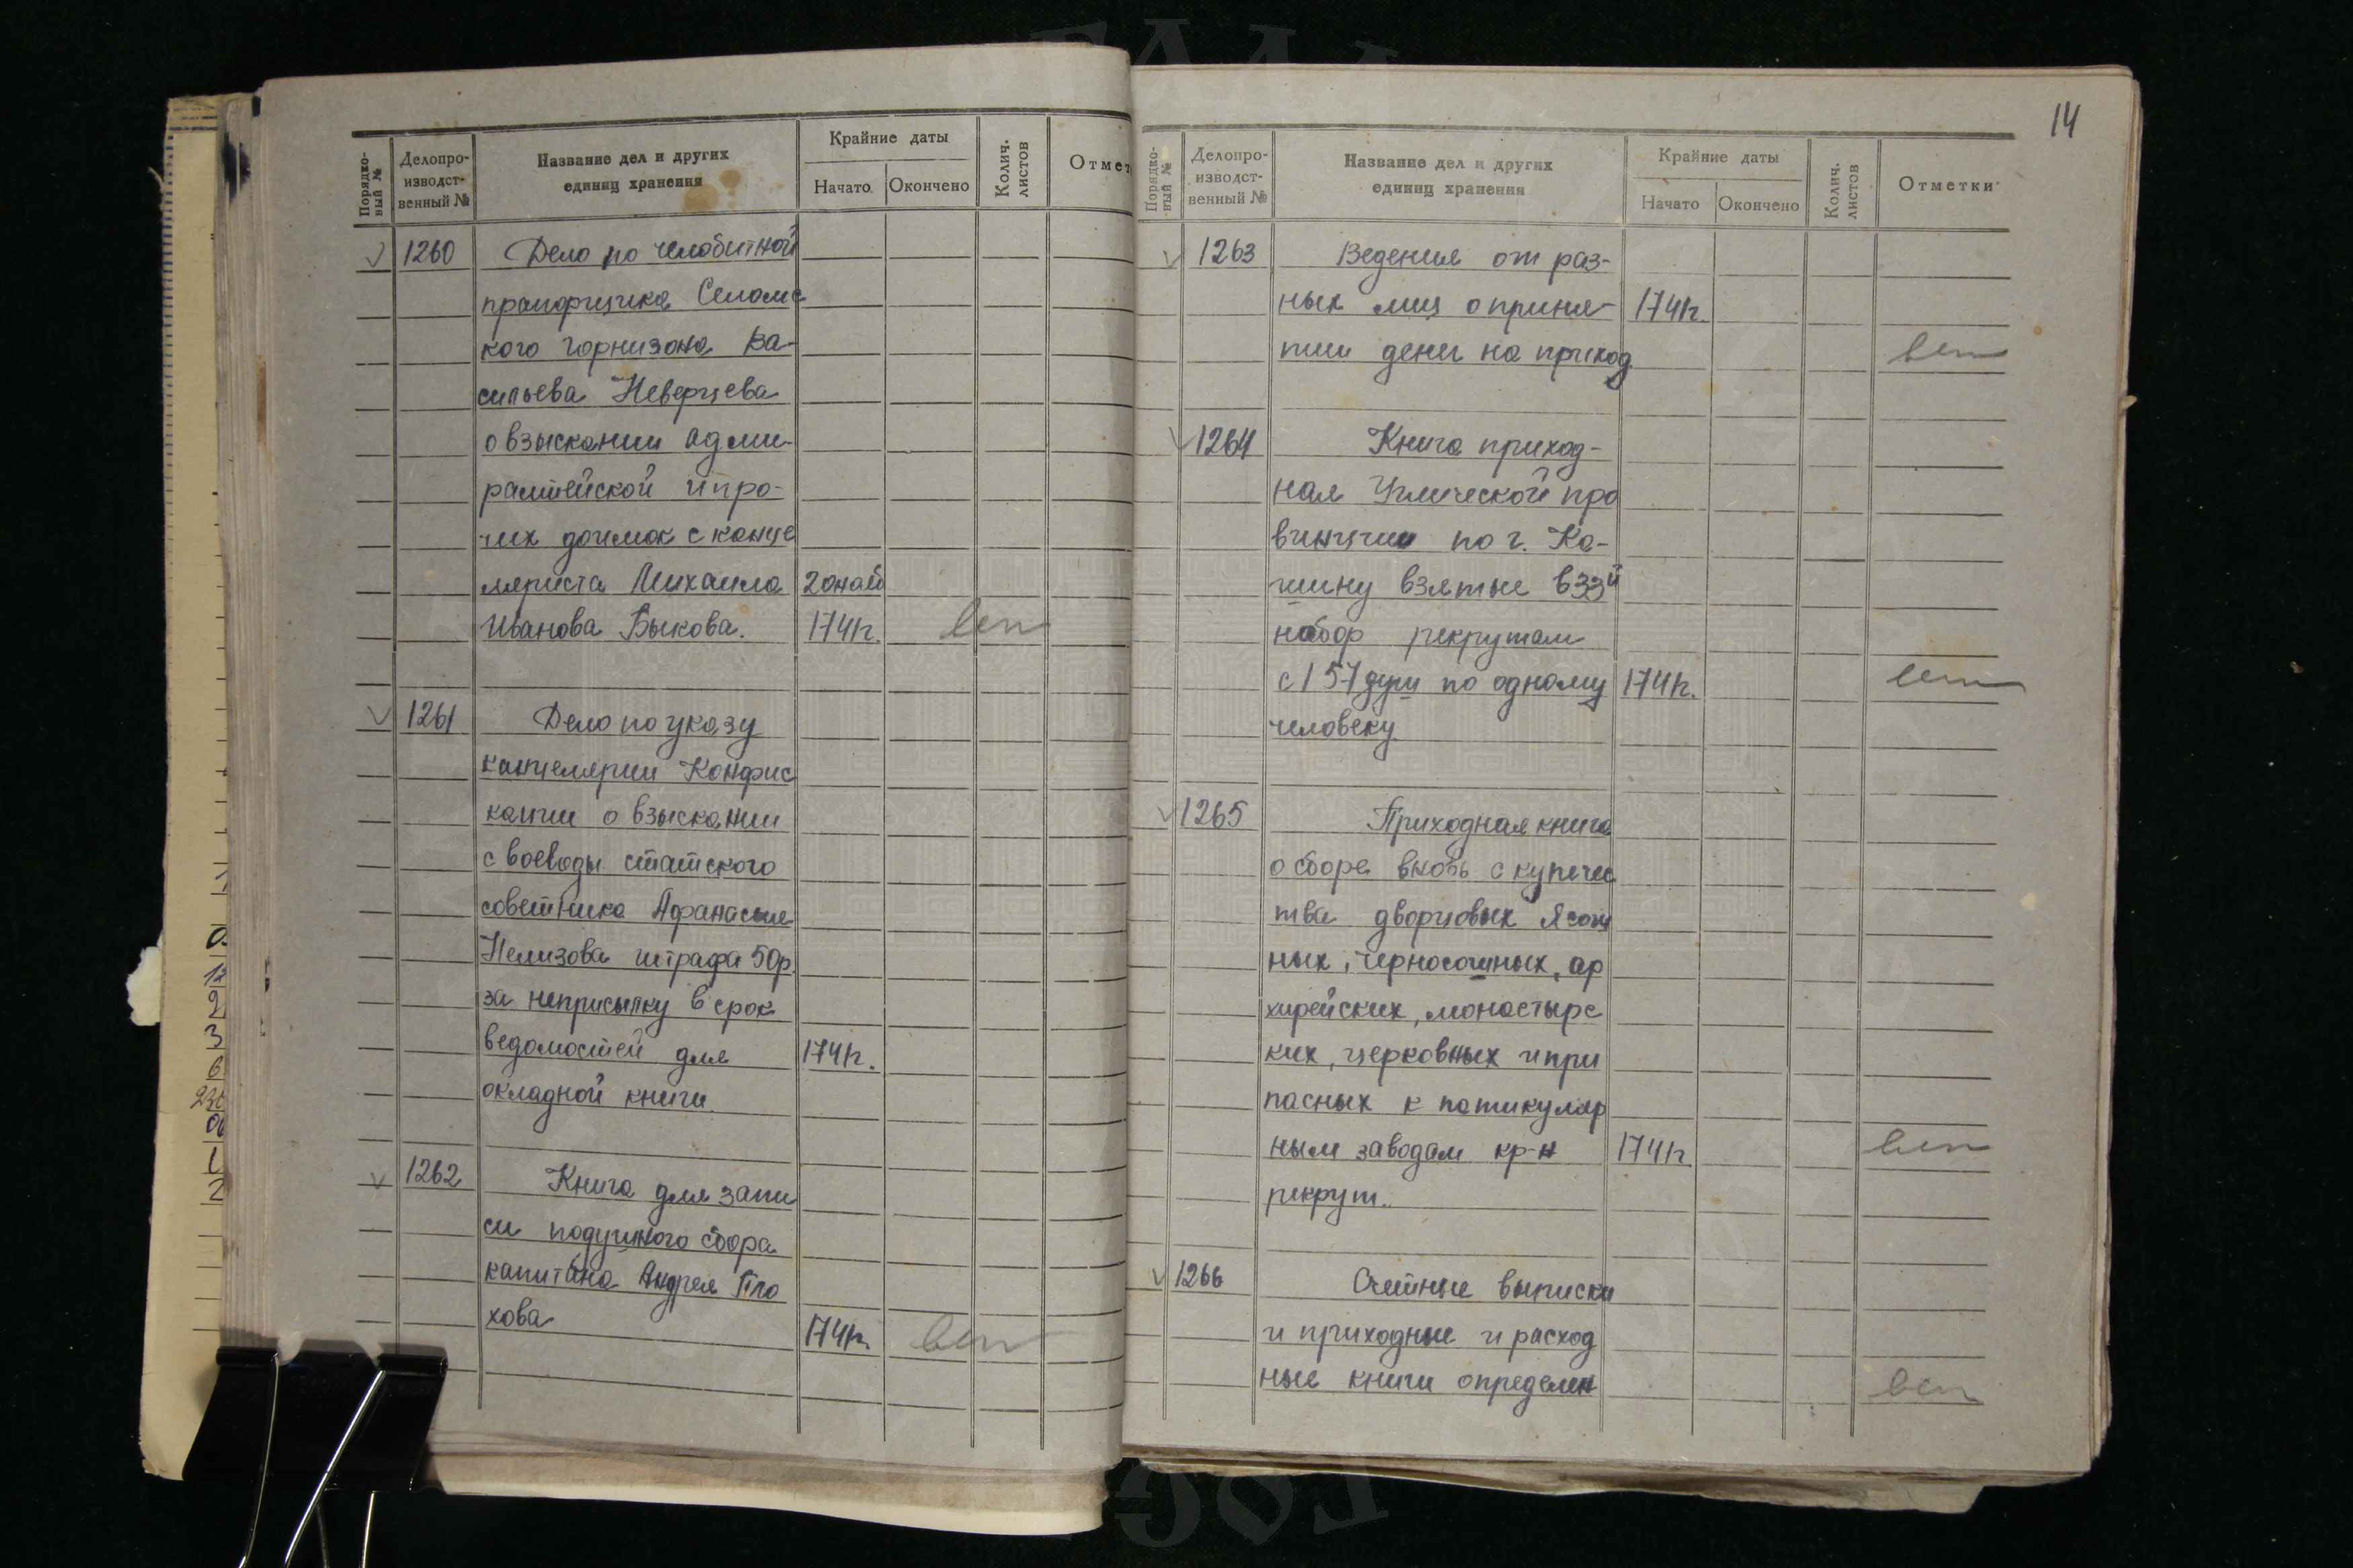 14
Порядко-
вый №
Делопро-
изводст-
венный №
Название дел и других
единиц хранения
Крайние даты
Начато
Окончено
Колич.
листов
Отмет
1260 Дело по челобитной
прапорщика Селамс
кого горнизона Ва-
сильева Неверцева
о взыскании адми-
ралтейской и про-
чих доимок с канце
ляриста Михаила
Иванова Быкова. 174г.
1261 Дело по указу
канцелярии Конфис
кации о взыскании
с воеводы статского
советника Афанасия
Нелизова штрафа 50р.
за неприсылку в срок
ведомостей для 174г.
окладной книги
1262 Книга для запи
си подушного сбора
капитана Андрея Пло
хова 174г.
Порядко-
вый №
Делопро-
изводст-
венный №
Название дел и других
единиц хранения
Крайние даты
Начато
Окончено
Колич.
листов
Отметки
1263 Ведения от раз-
ных лиц о приня- 174г.
тии денег на приход
1264 Книга приход-
ная Углической про
винции по г. Ка-
шину взятые в 33й
набор рекрутам
с 157 душ по одному 174г.
человеку
1265 Приходная книга
о сборе вновь с купечес
тва дворцовых Ясач
ных, черносошных, ар
хирейских, монастырс
ких, церковных и при
пасных к патикуляр
ным заводам кр-н 174г.
рекрут.
1266 Счетные выписки
и приходные и расход
ные книги определен